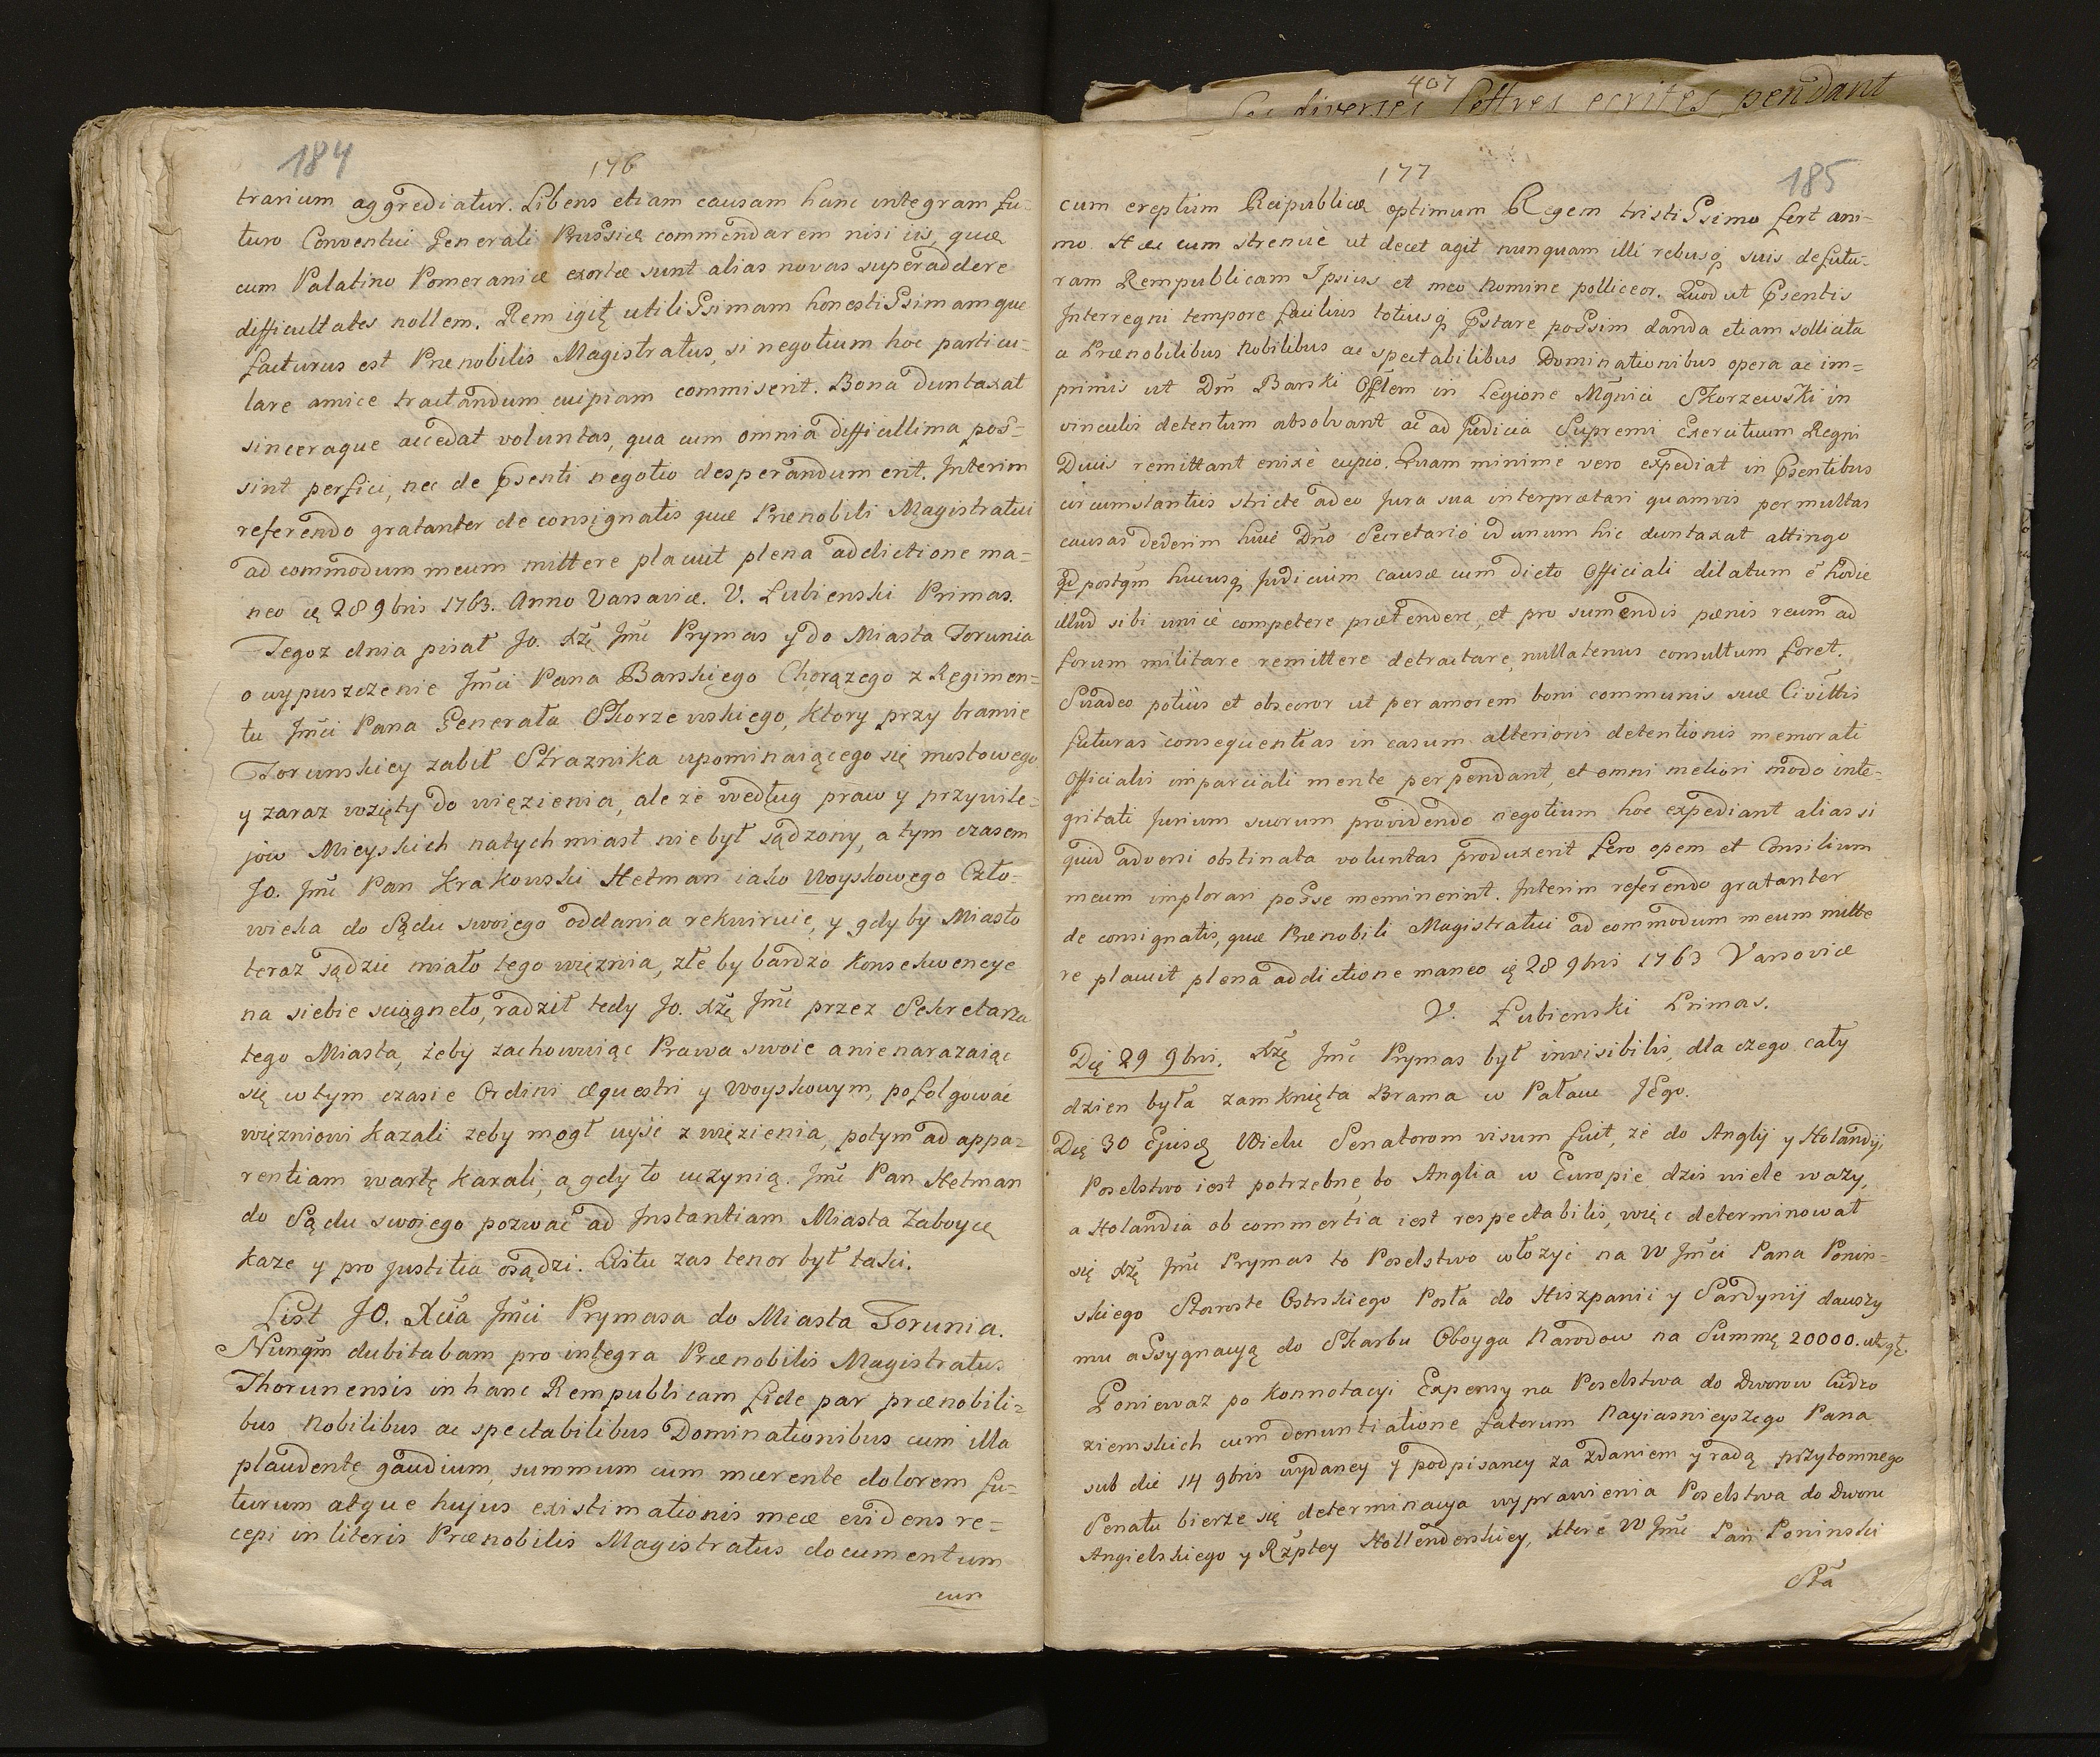 407
les diverses lettres ecrites pendant
184
176
trarium aggrediatur. Libens etiam causam hanc integram fu-
turo Conventui Generali Prussiæ commendarem nisi iis, quæ
cum Palatino Pomeraniæ exortæ sunt alias novas superaddere
difficultates nollem. Rem igit utilissimam honestissimamque
facturus est Prænobilis Magistratus, si negotium hoc particu-
lare amice tractandum cuipiam commiserit. Bona duntaxat
sinceraque accedat voluntas, qua cum omnia difficillima pos=
sint perfici, nec de psenti negotio desperandum erit. Interim
referendo gratanter de consignatis quæ Prænobili Magistratui
ad commodum meum mittere placuit plena addictione ma=
neo 28 9bris 1763. Anno Varsaviæ. V. Łubienski Primas.
Tegoz dnia pisał Jo. Xżę Jmć Prymas y do Miasta Torunia
o wypuszczenie Jmći Pana Barskiego Chorązego z Regimen=
tu Jmći Pana Generała Skorzewskiego, ktory przy bramie
Torunskiey zabił Straznika upominaiącego się mostowego
y zaraz wzięty do więzienia, ale ze według praw y przywile=
jow Mieyskich natychmiast nie był sądzony, a tym czasem
Jo. Jmć Pan Krakowski Hetman iako woyskowego Czło=
wieka do Sądu swoiego oddania rekwiruie, y gdyby Miasto
teraz sądzic miało tego więznia, złe by bardzo konsekwencye
na siebie sciągneło, radził tedy Jo. Xżę Jmć przez Sekretarza
tego Miasta, żeby zachowuiąc Prawa swoie a nienarazaiąc
się w tym czasie Ordini æquestri y woyskowym, pofolgować
więzniowi kazali zeby mogł uyść z więzienia, potym ad appa=
rentiam wartę karali, a gdy to uczynią. Jmć Pan Hetman
do Sądu swoiego pozwać ad Instantiam Miasta Zaboycę
kaze y pro Justitia osądzi. Listu zas tenor był taki.
List JO. Xcia Jmći Prymasa do Miasta Torunia.
Nunqm dubitabam pro integra Prænobilis Magistratus
Thorunensis in hanc Rempublicam fide par prænobili=
bus Nobilibus ac spectabilibus Dominationibus cum illa
plaudente gaudium, summum cum mærente dolorem fu=
turum atque hujus existimationis meæ evidens re=
cepi in literis Prænobilis Magistratus documentum
cum
177
185
cum ereptum Reipublicæ optimum Regem tristissimo fert ani-
mo. Hæc cum strenuè ut decet agit nunquam illi rebusq suis defutu-
ram Rempublicam Ipsius et meo Nomine polliceor. Quod ut psentis
Interregni tempore facilius totiusq pstare possim danda etiam sollicita
a Prænobilibus Nobilibus ac spectabilibus Dominationibus opera ac im=
primis ut Dm Barski Offlem in Legione Mgnici Skorzewski in
vinculis detentum absolvant ac ad Judicia Supremi Exercituum Regni
Ducis remittant enixè cupio. Quam minime vero expediat in psentibus
circumstantiis stricte adeo Jura sua interprætari quamvis permultas
causas dederim huic Dno Secretario id unum hic duntaxat attingo
qd postqm hucusq Judicium causæ cum dicto Officiali dilatum ē hodie
illud sibi unicè competere prætendere, et pro sumendis pænis reum ad
forum militare remittere detractare, nullatenus consultum foret.
Suadeo potiùs et obsecror ut per amorem boni communis suæ Civittis
futuras consequentias in casum alterioris detentionis memorati
Officialis imparciali mente perpendant, et omni meliori modo inte-
gritati Jurium suorum providendo negotium hoc expediant alias si
quid adversi obstinata voluntas produxerit sero opem et Consilium
meum implorari posse meminerint. Interim referendo gratanter
de consignatis, quæ Prænobili Magistratui ad commodum meum mitte
re placuit plena addictione maneo 28 9bris 1763 Varsoviæ
V. Łubienski Primas.
Die 29 9bris. Xżę Jmć Prymas był invisibilis, dla czego cały
dzien była zamknięta Brama w Pałacu Jego.
Die 30 Ejusd Wielu Senatorom visum fuit, że do Anglij y Holandij,
Poselstwo iest potrzebne, bo Anglia w Europie dzis wiele wazy,
a Holandia ob commertia iest respectabilis, więc determinował
się Xżę Jmć Prymas to Poselstwo włozyć na W Jmći Pana Ponin=
skiego Staroste Ostrskiego Posła do Hiszpanii y Sardynij dawszy
mu assygnacyą do Skarbu Oboyga Narodow na Summę 20000.
Poniewaz po konnotacyi Expensy na Poselstwa do Dworow Cudzo
ziemskich cum denuntiatione fatorum Nayiasnieyszego Pana
sub die 14 9bris wydaney y podpisaney za zdaniem y radą przytomnego
Senatu bierze się determinacya wyprawienia Poselstwa do Dworu
Angielskiego y Rzptey Hollenderskiey, ktore W Jmć Pan Poninski
Sta